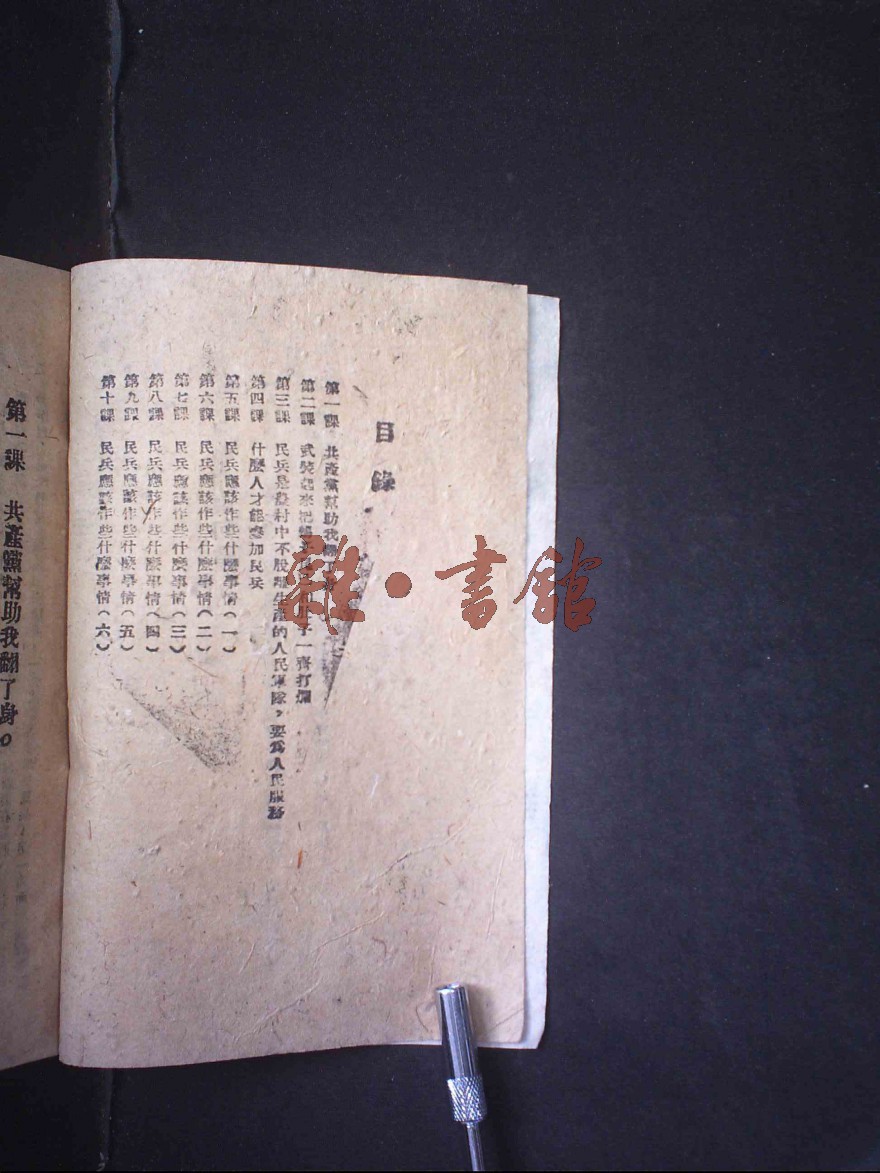 目錄
第一課　共產黨幫助我翻了身
第二課　武裝起來把 子一齊打爛
第三課　民兵是農村中不脫離生產的人民軍隊，要為人民服務
第四課　什麼人才能參加民兵
第五課　民兵應該作些什麼事情（一）
第六課　民兵應該作些什麼事情（二）
第七課　民兵應該作些什麼事情（三）
第八課　民兵應該作些什麼事情（四）
第九課　民兵應該作些什麼事情（五）
第十課　民兵應該作些什麼事情（六）
第一課　共產黨幫助我翻了身。
雜·書館